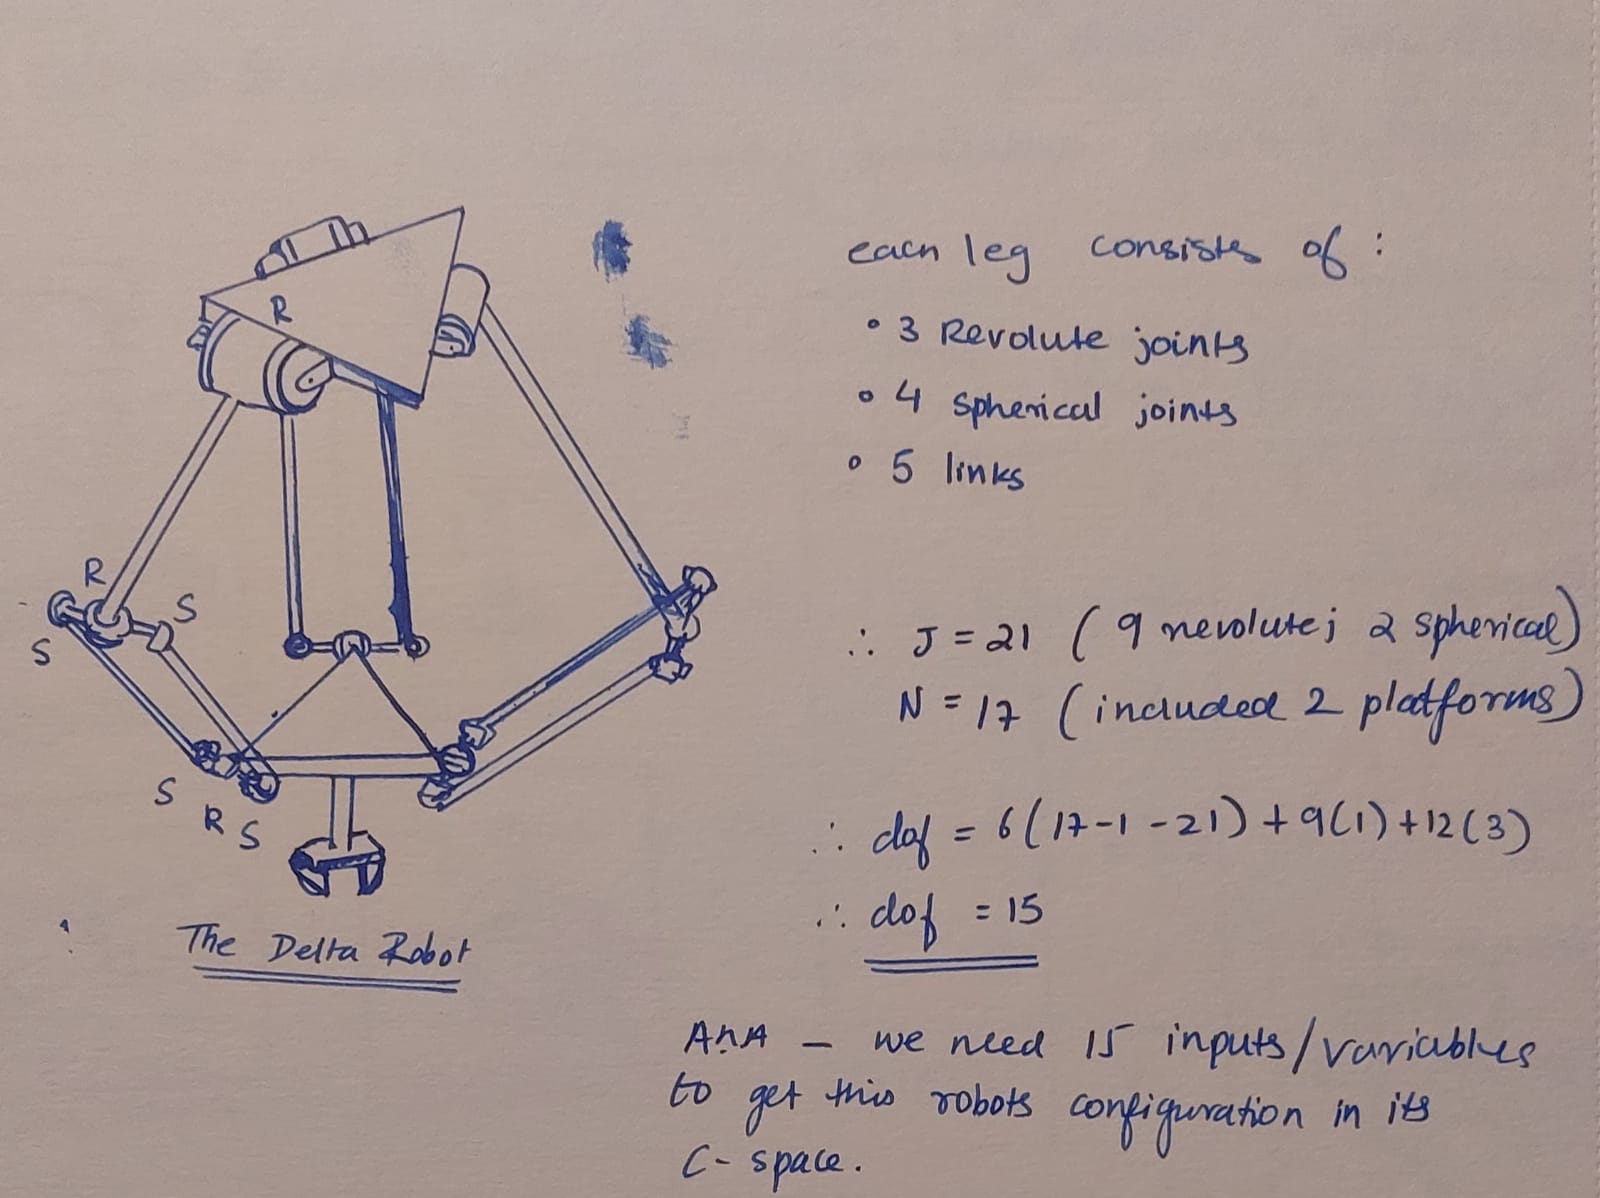 R
R
S
S
S
R
S
The Delta Robot
each leg consists of :
• 3 Revolute joints
• 4 spherical joints
• 5 links
∴ J = 21 ( 9 revolute; 2 spherical)
N = 17 ( included 2 platforms)
∴ dof = 6(17-1-21)+9(1)+12(3)
∴ dof = 15
AnA – we need 15 inputs/variables
to get this robots configuration in its
C-space.